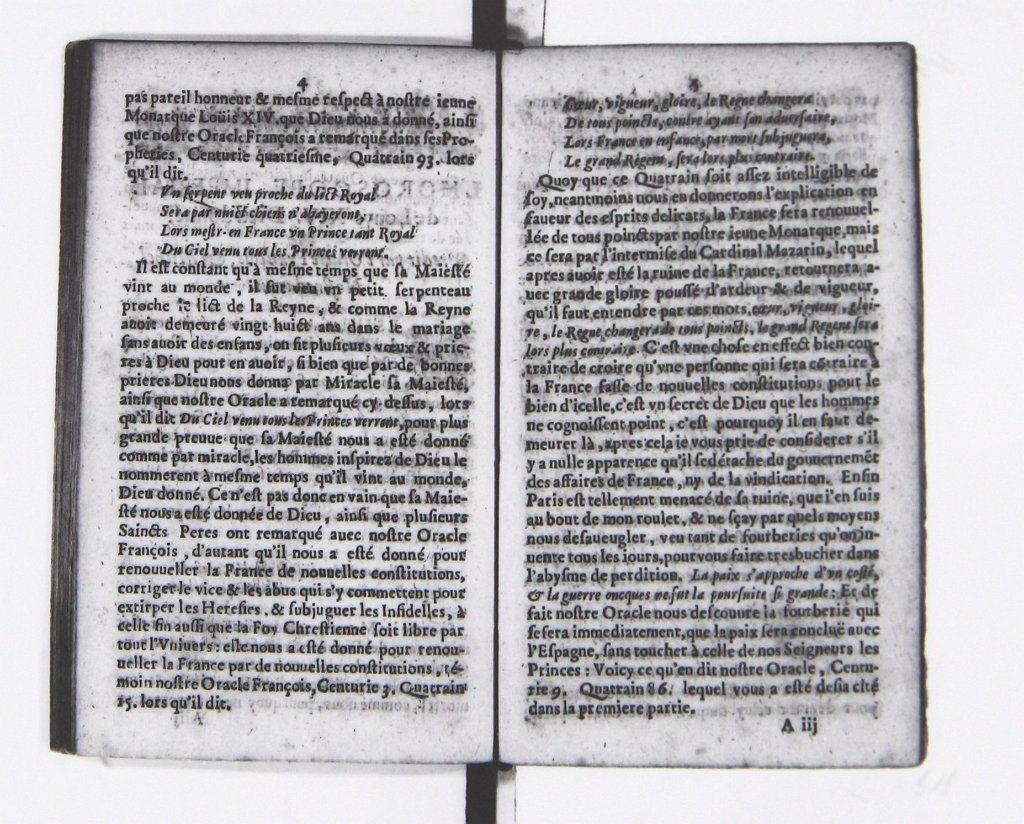 4
pas pareil honneur & mesme respect à nostre ieune
Monarque Loüis XIV. que Dieu nous a donné, ainsi
que nostre Oracle François a remarqué dans ses Pro-
pheties, Centurie quatriesme, Quatrain 93. lors
qu'il dit.
Vn serpent veu proche du lict Royal
Sera par nuict chiens n'abayeront,
Lors mestr-en France vn Prince tant Royal
Du Ciel venu tous les Princes verront.
Il est constant qu'à mesme temps que sa Maiesté
vint au monde, il fut veu vn petit serpenteau
proche le lict de la Reyne, & comme la Reyne
auoit demeuré vingt huict ans dans le mariage
sans auoit des enfans, on fit plusieurs vœux & prie-
res à Dieu pour en auoir, si bien que par de bonnes
prieres Dieu nous donna par Miracle sa Maiesté,
ainsi que nostre Oracle a remarqué cy dessus, lors
qu'il dit Du Ciel venu tous les Princes verront, pour plus
grande preuue que sa Maiesté nous a esté donné
comme par miracle, les hommes inspirez de Dieu le
nommerent à mesme temps qu'il vint au monde,
Dieu donné. Ce n'est pas donc en vain que sa Maie-
sté nous a esté donnée de Dieu, ainsi que plusieurs
Saincts Peres ont remarqué auec nostre Oracle
François, d'autant qu'il nous a esté donné pour
renouueller la France de nouuelles constitutions,
corriger le vice & les abus qui s'y commettent pour
extirper les Heresies, & subjuguer les Infidelles, à
celle fin aussi que la Foy Chrestienne soit libre par
tout l'Vniuers: elle nous a esté donné pour renou-
ueller la France par de nouuelles constitutions, té-
moin nostre Oracle François, Centurie 3. Quatrain
15. lors qu'il dit.
Cœur, vigueur, gloire, le Regne changera
De tous poincts, contre ayant son aduersaire,
Lors France en enfance, par mort subjuguera,
Le grand Regent, sera lors plus contraire.
Quoy que ce Quatrain soit assez intelligible de
soy, neantmoins nous en donnerons l'explication en
faueur des esprits delicats, la France sera renouuel-
lée de tous poincts par nostre ieune Monarque, mais
ce sera par l'intermise du Cardinal Mazarin, lequel
apres auoir esté la ruine de la France, retournera a-
uec grande gloire poussé d'ardeur & de vigueur,
qu'il faut entendre par ces mots, cœur, vigueur, gloi-
re, le Regne changera de tous poincts, le grand Regent sera
lors plus contraire. C'est vne chose en effect bien con-
traire de croire qu'vne personne qui sera cõtraire à
la France fasse de nouuelles constitutions pour le
bien d'icelle, c'est vn secret de Dieu que les hommes
ne cognoissent point, c'est pourquoy il en faut de-
meurer là, apres cela ie vous prie de considerer s'il
y a nulle apparence qu'il se détache du gouuernemẽt
des affaires de France, ny de la vindication. Enfin
Paris est tellement menacé de sa ruine, que i'en suis
au bout de mon roulet, & ne sçay par quels moyens
nous desaueugler, veu tant de fourberies qu'on in-
uente tous les iours, pour vous faire tresbucher dans
l'abysme de perdition. La paix s'approche d'vn costé,
& la guerre oncques ne fut la poursuite si grande: Et de
fait nostre Oracle nous descouure la fourberie qui
se fera immediatement, que la paix sera concluë auec
l'Espagne, sans toucher à celle de nos Seigneurs les
Princes: Voicy ce qu'en dit nostre Oracle, Centu-
rie 9. Quatrain 86. lequel vous a esté desia cité
dans la premiere partie.
A iij